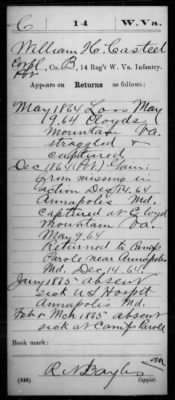 C 14 W.Va.
William H. Casteel
Corpl
Pvt, Co. B, 14 Reg't W. Va. Infantry.
Appears on Returns as follows:
May 1864 Loss May
9, 64 Cloyds
Mountain Va.
straggled &
captured
Dec 1864 Gain:
from missing in
action Dec 14, 64
Annapolis Md.
Captured at Cloyd
Mountain Va.
May 9, 64
Returned to Camp
Parole near Annapolis
Md. Dec 14, 64
Jany 1865 absent
sick US Hospt
Annapolis Md.
Feb & Mch 1865 absent
sick at Camp Parole
Book mark:
(546) Copyist.